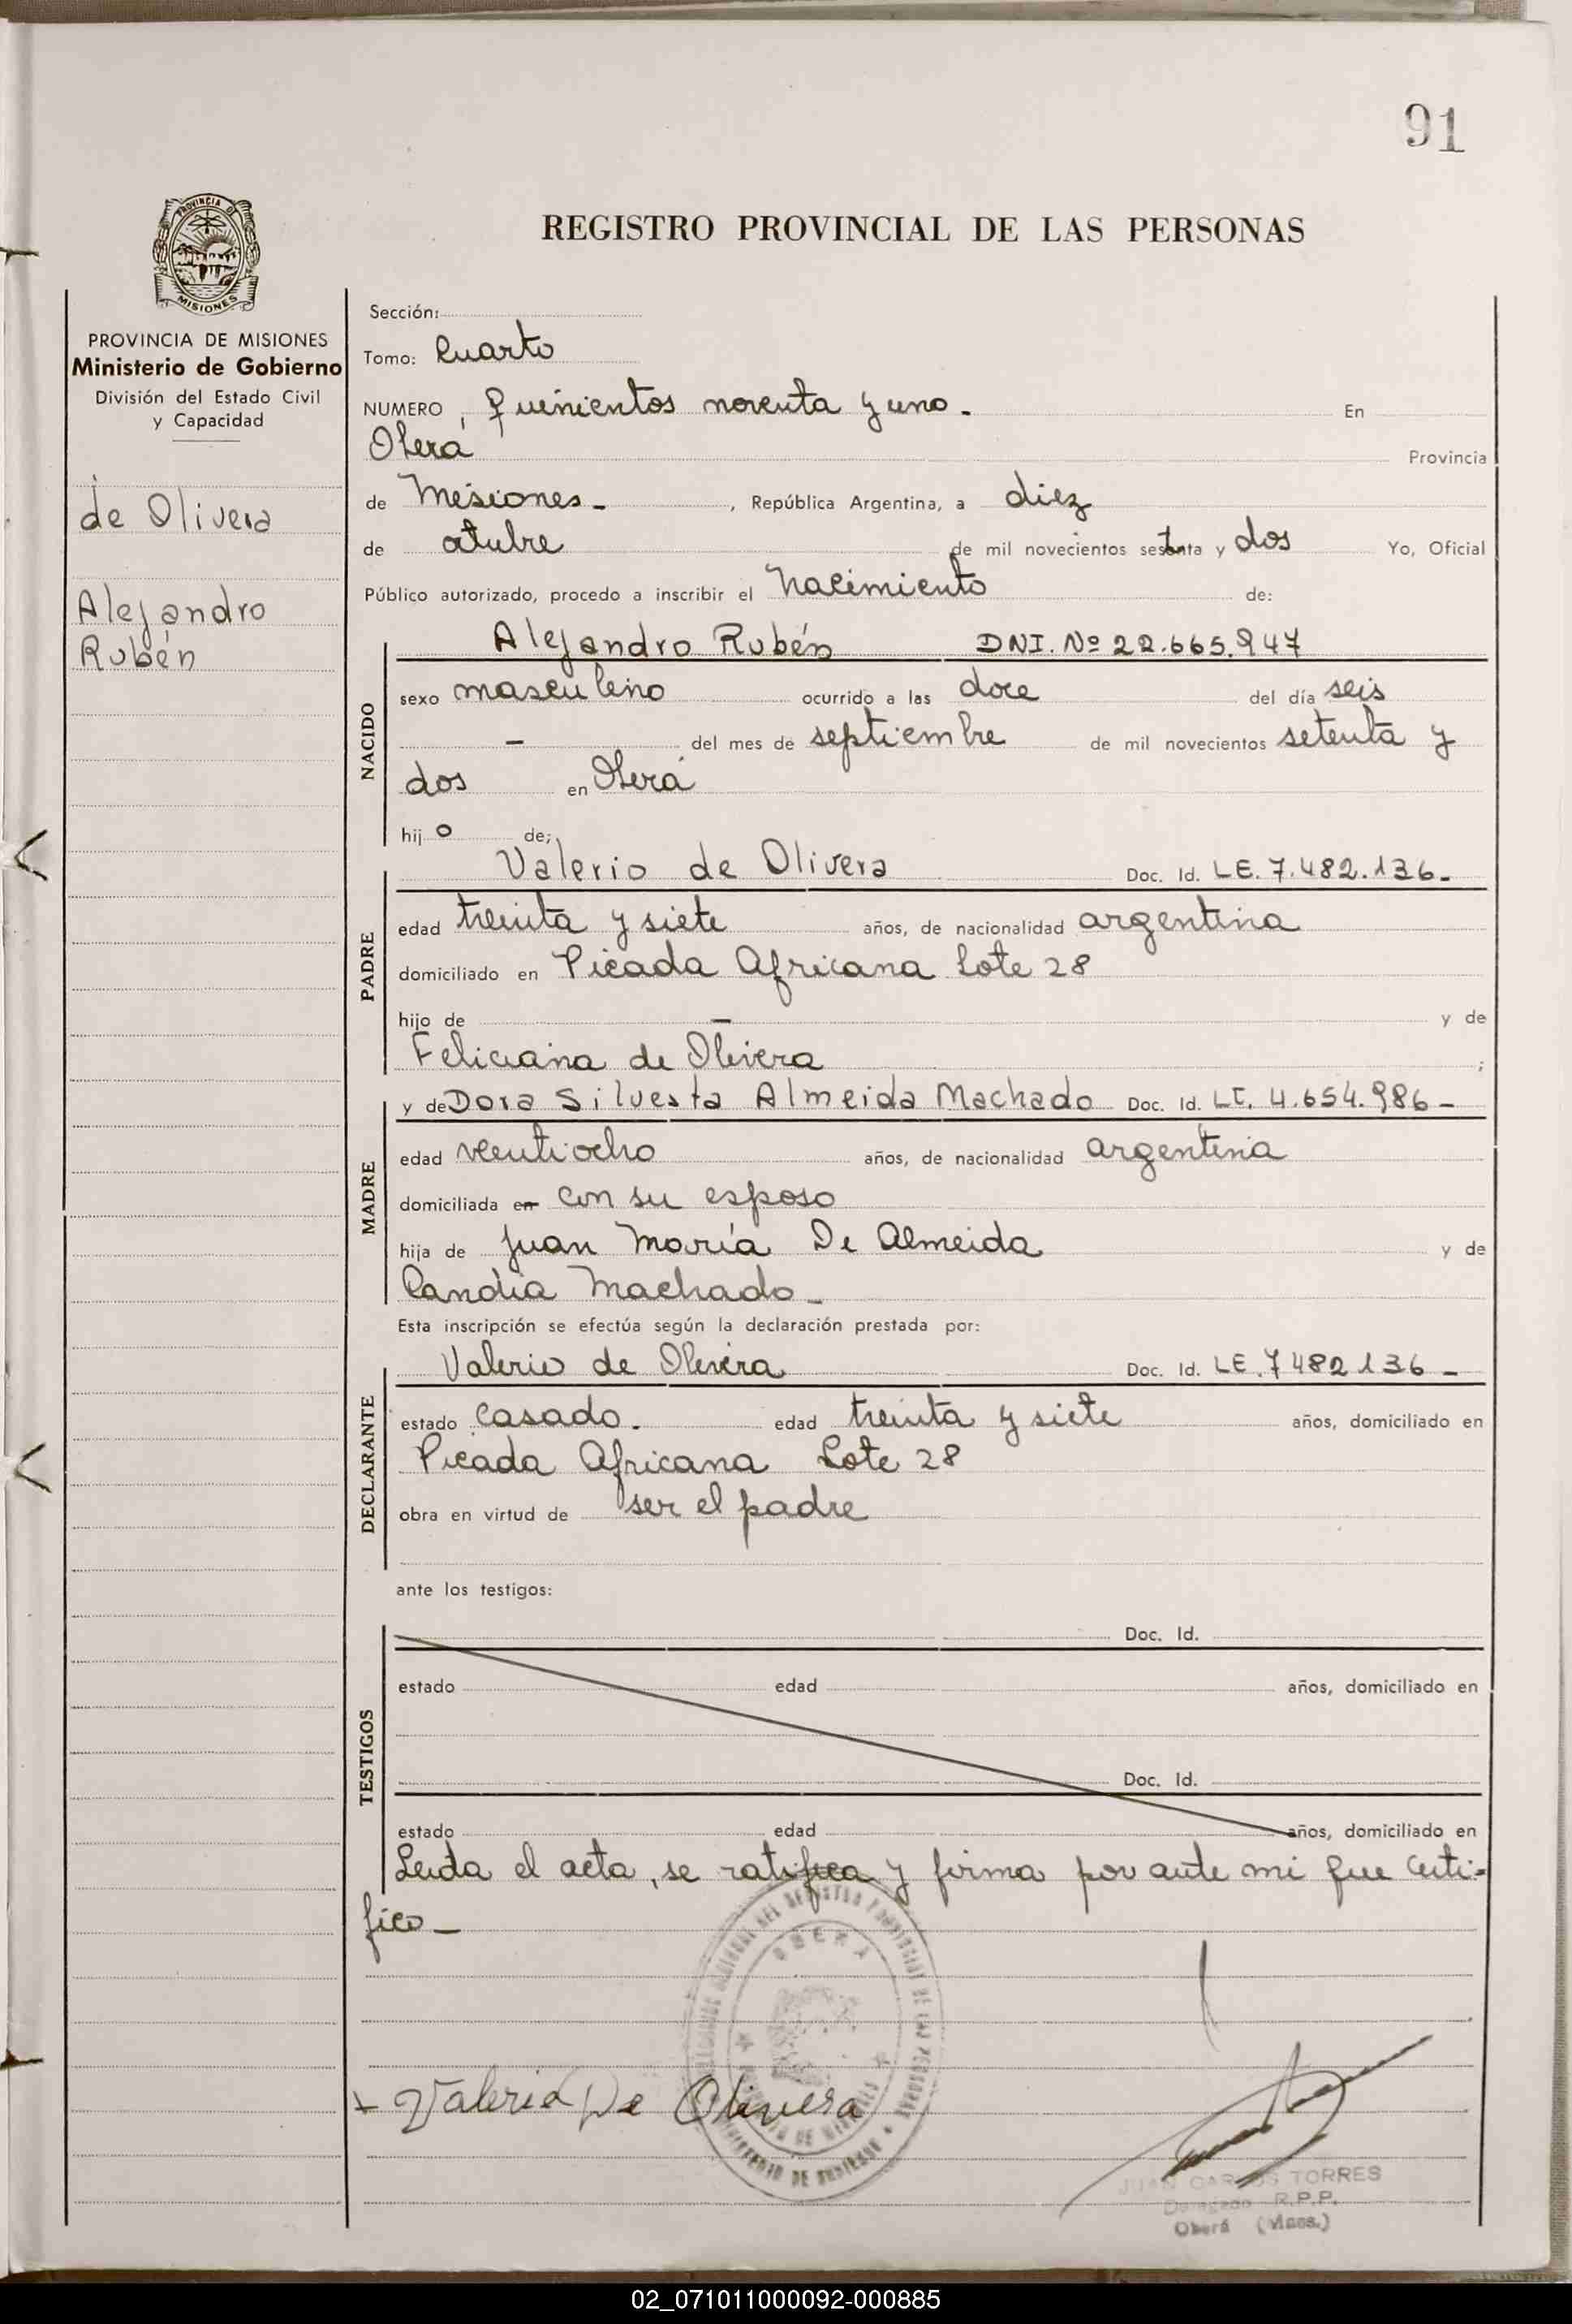 91
PROVINCIA DE
MISIONES
REGISTRO PROVINCIAL DE LAS PERSONAS
PROVINCIA DE MISIONES
Ministerio de Gobierno
División del Estado Civil
y Capacidad
de Olivera
Alejandro
Rubén
Sección:
Tomo: Cuarto
NUMERO, quinientos noventa y uno. En
Oberá Provincia
de Misiones -, República Argentina, a diez
de octubre de mil novecientos setenta y dos Yo, Oficial
Público autorizado, procedo a inscribir el Nacimiento de:
NACIDO
Alejandro Rubén DNI. Nº 22.665.947
sexo masculino ocurrido a las doce del día seis
- del mes de septiembre de mil novecientos setenta y
dos en Oberá
hijo de;
PADRE
Valerio de Olivera Doc. Id. LE. 7.482.136-
edad treinta y siete años, de nacionalidad argentina
domiciliado en Picada Africana Lote 28
hijo de - y de
Feliciana de Olivera ;
MADRE
y de Dora Silvesta Almeida Machado Doc. Id. LC. 4.654.986-
edad veintiocho años, de nacionalidad argentina
domiciliada en con su esposo
hija de Juan María De Almeida y de
Candia Machado-
Esta inscripción se efectúa según la declaración prestada por:
DECLARANTE
Valerio de Olivera Doc. Id. LE. 7482136-
estado casado. edad treinta y siete años, domiciliado en
Picada Africana Lote 28
obra en virtud de ser el padre
ante los testigos:
TESTIGOS
Doc. Id.
estado edad años, domiciliado en
Doc. Id.
estado edad años, domiciliado en
Leida el acta, se ratifica y firma por ante mi que certi-
fico-
OBERA
Valerio De Olivera
JUAN CARLOS TORRES
Delegado R.P.P.
Oberá (Mnes.)
02_071011000092-000885